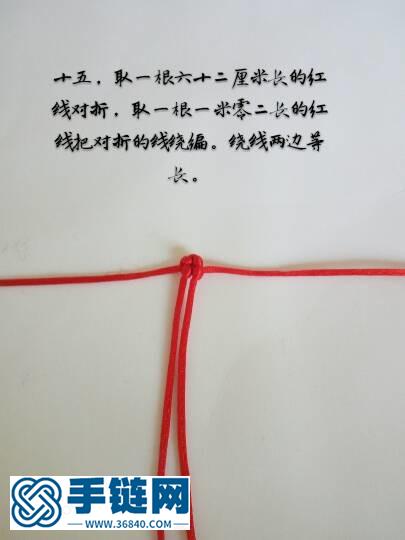 十五，取一根六十二厘米长的红
线对折，取一根一米零二长的红
线把对折的线绕编。绕线两边等
长。
手链网
WWW.36840.COM